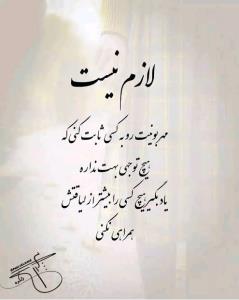 لازم نیست
مهربونیت رو به کسی ثابت کنی که
هیچ توجهی بهت نداره
یاد بگیر هیچ کسی را بیشتر از لیاقتش
همراهی نکنی